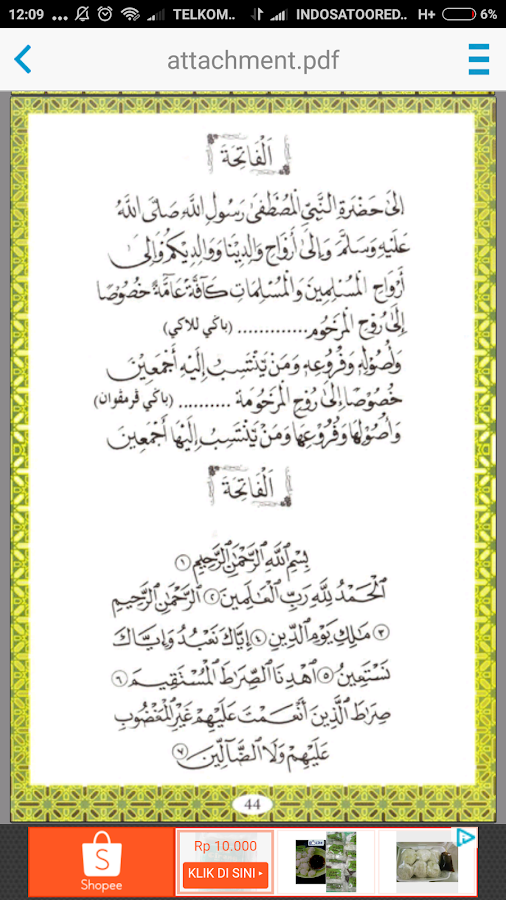 12:09 ... TELKOM.. INDOSATOORED.. H+ 6%
attachment.pdf
اَلْفَاتِحَةَ
اِلَى حَضْرَةِ النَّبِيِّ الْمُصْطَفَى رَسُولِ اللَّهِ صَلَّى اللَّهُ
عَلَيْهِ وَسَلَّمَ وَاِلَى أَرْوَاحِ وَالِدِيْنَا وَوَالِدِيْكُمْ وَاِلَى
أَرْوَاحِ الْمُسْلِمِيْنَ وَالْمُسْلِمَاتِ كَآفَّةً عَآمَّةً خُصُوْصًا
إِلَى رُوْحِ الْمَرْحُوْمِ............. (باكي للاكي)
وَأُصُوْلِهِ وَفُرُوْعِهِ وَمَنْ يَنْتَسِبُ إِلَيْهِ أَجْمَعِيْنَ
خُصُوْصًا إِلَى رُوْحِ الْمَرْحُوْمَةِ .......... (باكي ڤرمڤوان)
وَأُصُوْلِهَا وَفُرُوْعِهَا وَمَنْ يَنْتَسِبُ إِلَيْهَا أَجْمَعِيْنَ
اَلْفَاتِحَةَ
بِسْمِ ٱللَّهِ ٱلرَّحْمَٰنِ ٱلرَّحِيمِ ١
ٱلْحَمْدُ لِلَّهِ رَبِّ ٱلْعَٰلَمِينَ ٢ ٱلرَّحْمَٰنِ ٱلرَّحِيمِ
٣ مَٰلِكِ يَوْمِ ٱلدِّينِ ٤ إِيَّاكَ نَعْبُدُ وَإِيَّاكَ
نَسْتَعِينُ ٥ ٱهْدِنَا ٱلصِّرَٰطَ ٱلْمُسْتَقِيمَ ٦
صِرَٰطَ ٱلَّذِينَ أَنْعَمْتَ عَلَيْهِمْ غَيْرِ ٱلْمَغْضُوبِ
عَلَيْهِمْ وَلَا ٱلضَّآلِّينَ ٧
44
Shopee
Rp 10.000
KLIK DI SINI